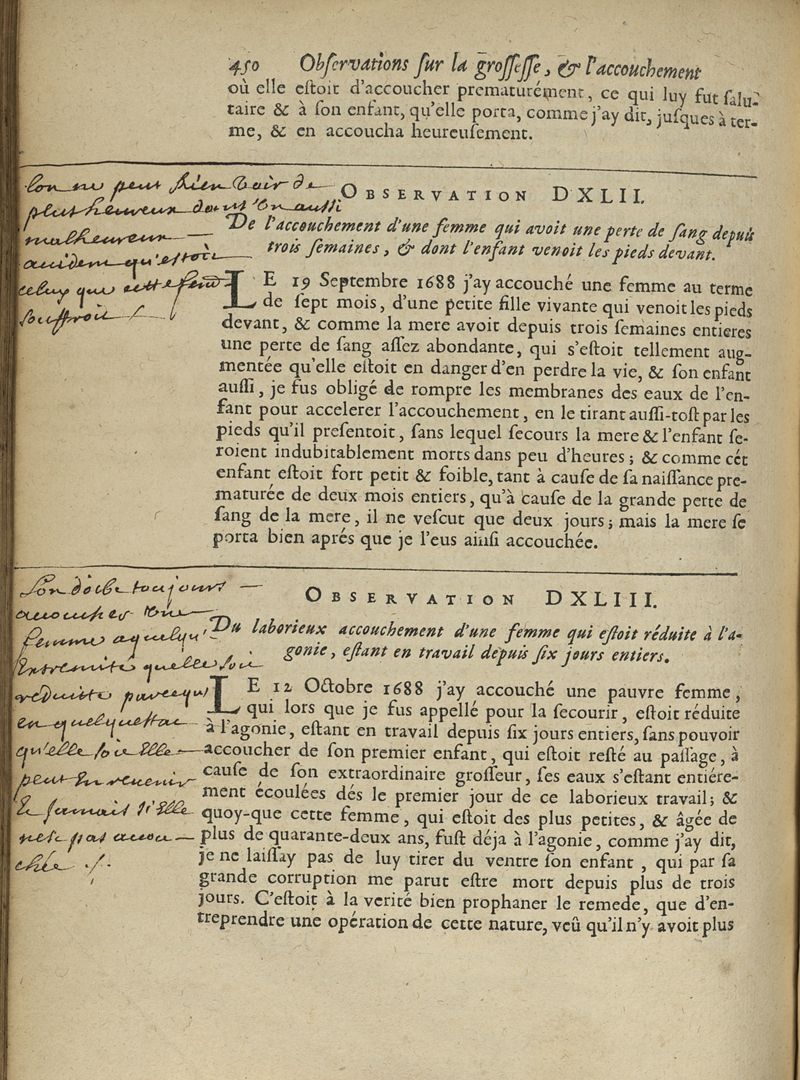 450 Obſervations ſur la groſſeſſe, & l'accouchement
où elle eſtoit d'accoucher prematurément, ce qui luy fut ſalu-
taire & à ſon enfant, qu'elle porta, comme j'ay dit, juſques à ter-
me, & en accoucha heureuſement.
lon ne peut Rien de
plus heureux aussi
malheureux
accident qu'estoit
celuy que cette femme
souffroit
OBSERVATION DXLII.
De l'accouchement d'une femme qui avoit une perte de ſang depuis
trois ſemaines, & dont l'enfant venoit les pieds devant.
LE 19 Septembre 1688 j'ay accouché une femme au terme
de ſept mois, d'une petite fille vivante qui venoit les pieds
devant, & comme la mere avoit depuis trois ſemaines entieres
une perte de ſang aſſez abondante, qui s'eſtoit tellement aug-
mentée qu'elle eſtoit en danger d'en perdre la vie, & ſon enfant
auſſi, je fus obligé de rompre les membranes des eaux de l'en-
fant pour accelerer l'accouchement, en le tirant auſſi-toſt par les
pieds qu'il preſentoit, ſans lequel ſecours la mere & l'enfant ſe-
roient indubitablement morts dans peu d'heures; & comme cét
enfant eſtoit fort petit & foible, tant à cauſe de ſa naiſſance pre-
maturée de deux mois entiers, qu'à cauſe de la grande perte de
ſang de la mere, il ne veſcut que deux jours; mais la mere ſe
porta bien aprés que je l'eus ainſi accouchée.
lon doibt toujours
accoucher une
femme a quelqu'
extremite quelle soit
reduitte parce qu'
en quelque estat
qu'elle soit elle
peut en revenir
& jamais s'elle
nest pas accou
chée
OBSERVATION DXLIII.
Du laborieux accouchement d'une femme qui eſtoit réduite à l'a-
gonie, eſtant en travail depuis ſix jours entiers.
LE 12 Octobre 1688 j'ay accouché une pauvre femme,
qui lors que je fus appellé pour la ſecourir, eſtoit réduite
à l'agonie, eſtant en travail depuis ſix jours entiers, ſans pouvoir
accoucher de ſon premier enfant, qui eſtoit reſté au paſſage, à
cauſe de ſon extraordinaire groſſeur, ſes eaux s'eſtant entiére-
ment écoulées dés le premier jour de ce laborieux travail; &
quoy-que cette femme, qui eſtoit des plus petites, & âgée de
plus de quarante-deux ans, fuſt déja à l'agonie, comme j'ay dit,
je ne laiſſay pas de luy tirer du ventre ſon enfant, qui par ſa
grande corruption me parut eſtre mort depuis plus de trois
jours. C'eſtoit à la verité bien prophaner le remede, que d'en-
treprendre une opération de cette nature, veû qu'il n'y avoit plus